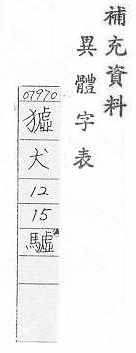 補充資料
異體字表
07970
獹
犬
12
15
驉